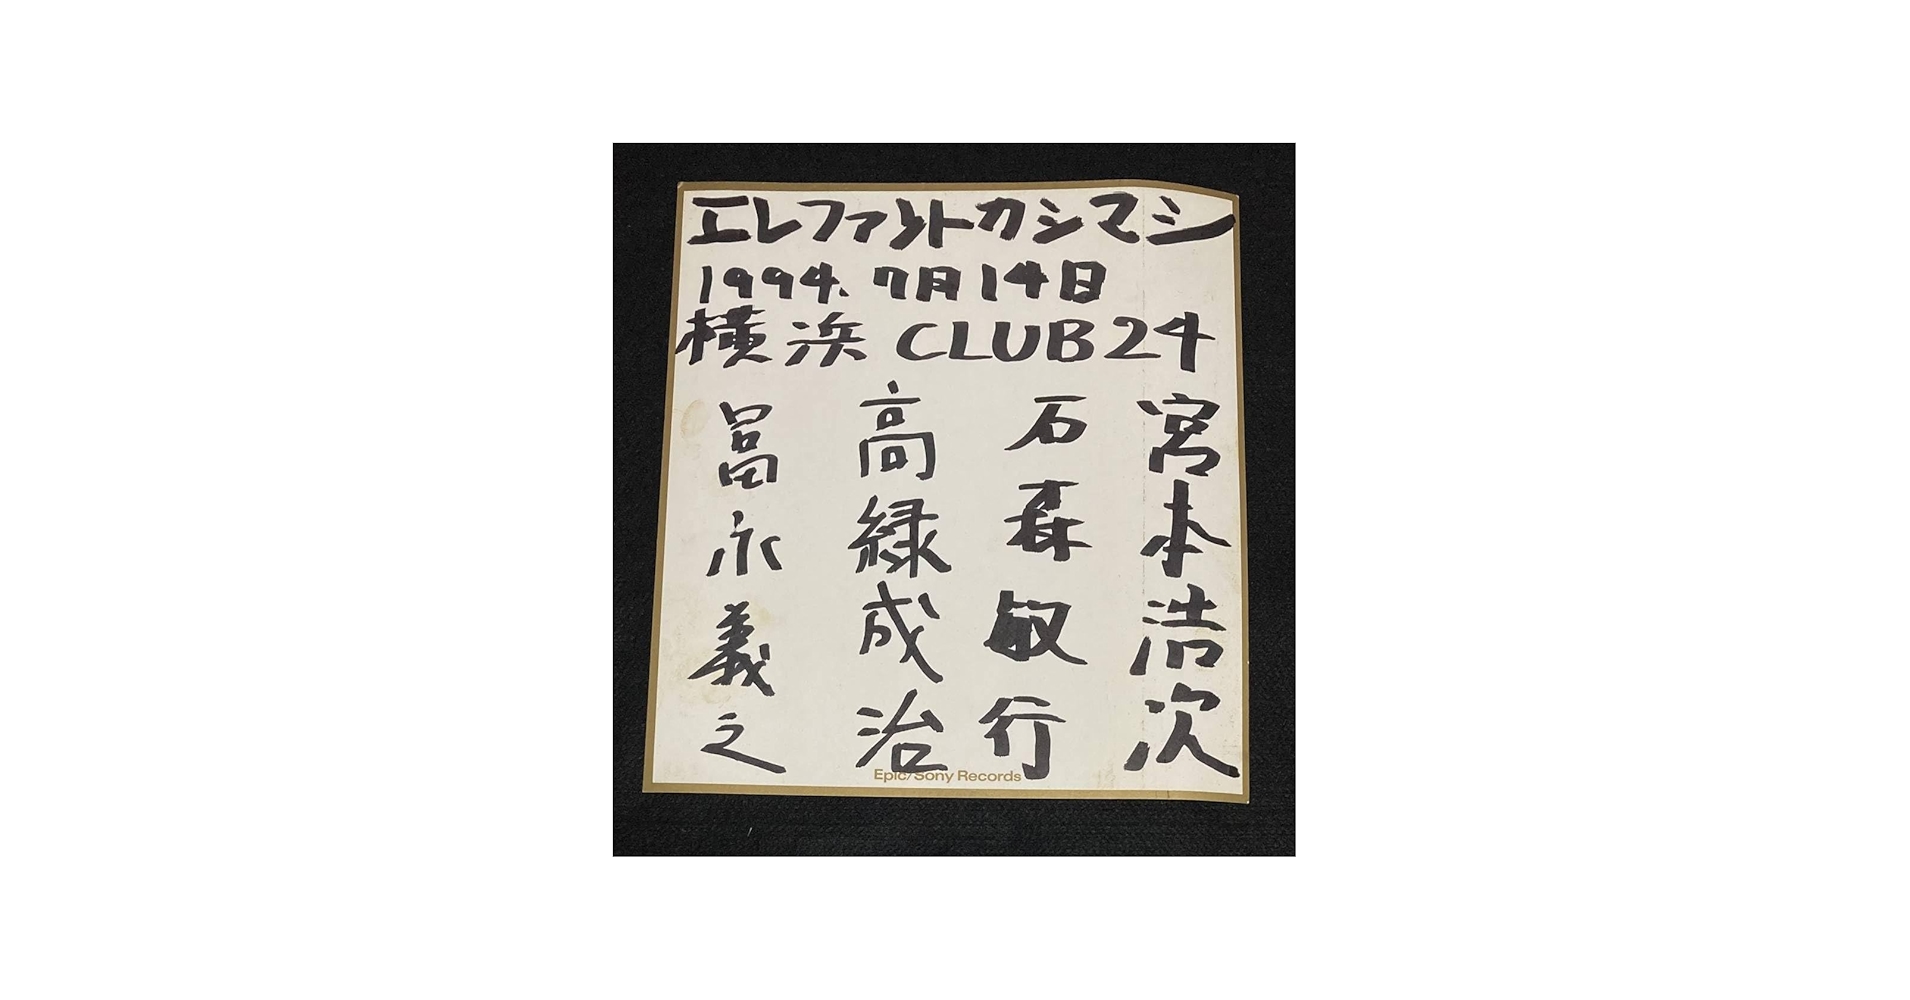 エレファントカシマシ
1994.7月14日
横浜 CLUB24
宮本浩次
石森敏行
高緑成治
冨永義之
Epic/Sony Records